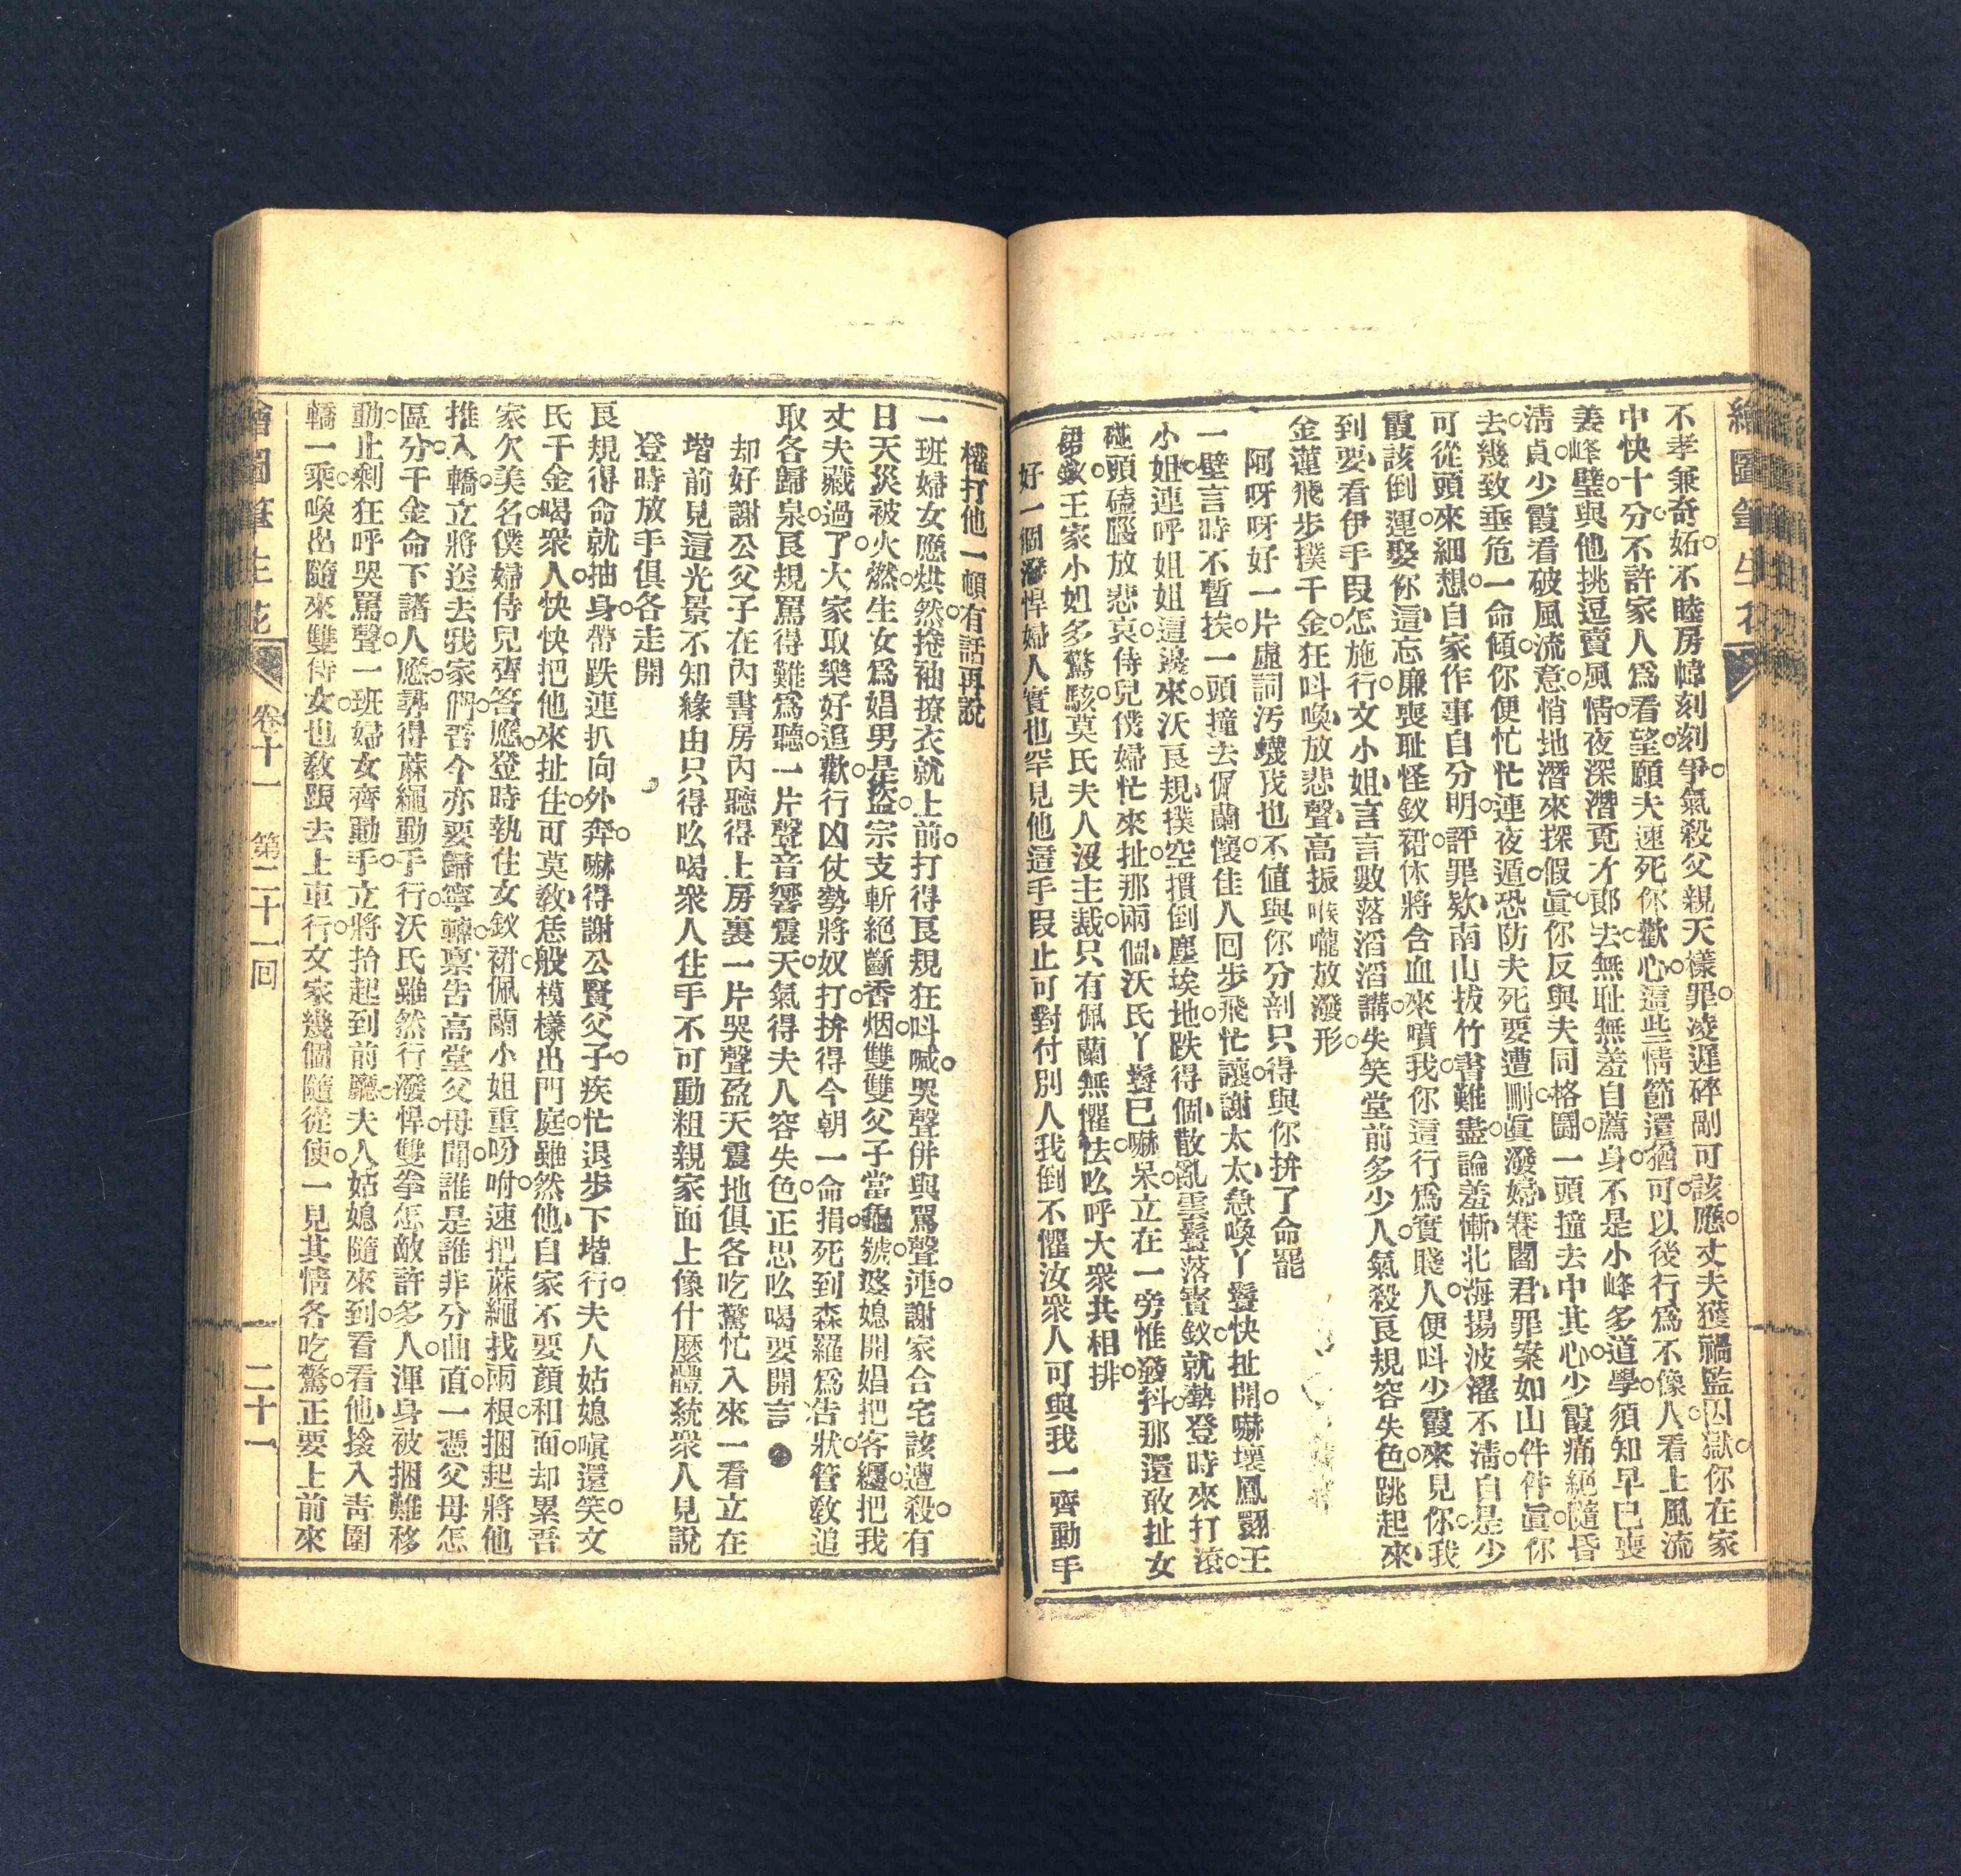 繪圖筆生花
不孝兼奇妬不睦房幃刻刻爭氣殺父親天樣罪凌遲碎剮可該應丈夫獲禍監囚獄你在家
中快十分不許家人爲看望願夫速死你歡心這些情節還猶可以後行爲不像人看上風流
義峰壁與他挑逗賣風情夜深潛覓才郎去無耻無羞自薦身不是小峰多道學須知早已喪
清貞少霞看破風流意悄地潛來探假眞你反與夫同格鬪一頭撞去中其心少霞痛絕隨昏
去幾致垂危一命傾你便忙忙連夜遁恐防夫死要遭剮眞潑婦賽閻君罪案如山件件眞你
可從頭來細想自家作事自分明評罪欵南山拔竹書難盡論羞慚北海揚波濯不淸自是少
霞該倒運娶你這忘廉喪耻怪釵裙休將含血來噴我你這行爲實賤人便呌少霞來見你我
到要看伊手叚怎施行文小姐言言數落滔滔講失笑堂前多少人氣殺良規容失色跳起來
金蓮飛步撲千金狂呌喚放悲聲高振喉嚨放潑形
阿呀呀好一片虛詞汚衊我也不值與你分剖只得與你拚了命罷
一壁言時不暫挨一頭撞去佩蘭懷佳人回步飛忙讓謝太太急喚丫鬟快扯開嚇壞鳳翾王
小姐連呼姐姐這邊來沃良規撲空摜倒塵埃地跌得個散亂雲鬟落寶釵就勢登時來打滾
碰頭磕腦放悲哀侍兒僕婦忙來扯那兩個沃氏丫鬟已嚇呆立在一旁惟發抖那還敢扯女
裙釵王家小姐多驚駭莫氏夫人沒主裁只有佩蘭無懼怯吆呼大衆共相排
好一個潑悍婦人實也罕見他這手叚止可對付別人我倒不懼汝衆人可與我一齊動手
權打他一頓有話再說
一班婦女應烘然捲袖撩衣就上前打得良規狂呌喊哭聲併與罵聲連謝家合宅該遭殺有
日天災被火燃生女爲娼男是盜宗支斬絕斷香烟雙雙父子當龜號婆媳開娼把客纏把我
丈夫藏過了大家取樂好追歡行凶仗勢將奴打拚得今朝一命捐死到森羅爲告狀管敎追
取各歸泉良規罵得難爲聽一片聲音響震天氣得夫人容失色正思吆喝要開言
却好謝公父子在內書房內聽得上房裏一片哭聲盈天震地俱各吃驚忙入來一看立在
堦前見這光景不知緣由只得吆喝衆人住手不可動粗親家面上像什麼體統衆人見說
登時放手俱各走開
良規得命就抽身帶跌連扒向外奔嚇得謝公賢父子疾忙退步下堦行夫人姑媳嗔還笑文
氏千金喝衆人快快把他來扯住可莫敎恁般模樣出門庭雖然他自家不要顏和面却累吾
家欠美名僕婦侍兒齊答應登時執住女釵裙佩蘭小姐重吩咐速把蔴繩找兩根捆起將他
推入轎立將送去我家們吾今亦要歸寧轉稟告高堂父母聞誰是誰非分曲直一憑父母怎
區分千金命下諸人應尋得蔴繩動手行沃氏雖然行潑悍雙拳怎敵許多人渾身被捆難移
動止剩狂呼哭罵聲一班婦女齊動手立將抬起到前廳夫人姑媳隨來到看看他接入靑圍
轎一乘喚出隨來雙侍女也敎跟去上車行文家幾個隨從使一見其情各吃驚正要上前來
繪圖筆生花 卷十一 第二十一回 二十一